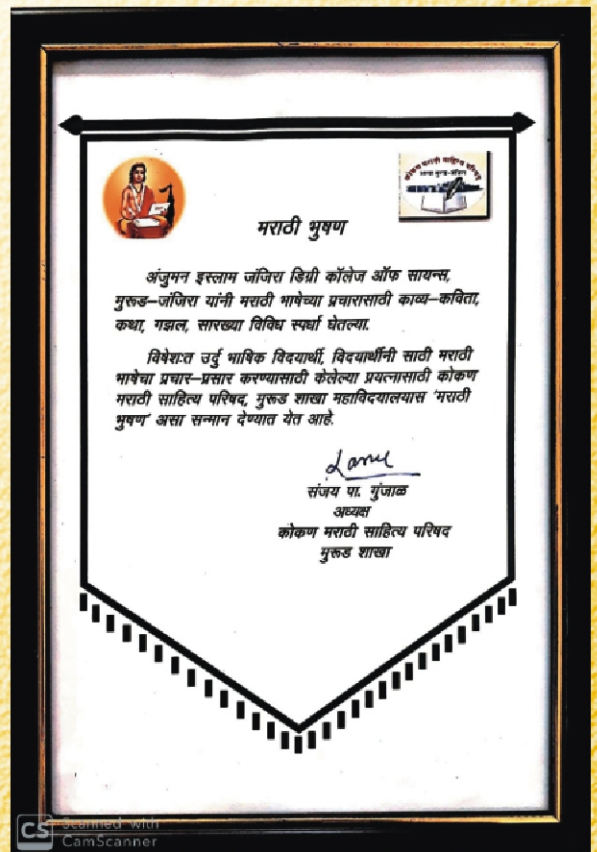 मराठी भुषण
अंजुमन इस्लाम जंजिरा डिग्री कॉलेज ऑफ सायन्स,
मुरूड–जंजिरा यांनी मराठी भाषेच्या प्रचारासाठी काव्य–कविता,
कथा, गझल, सारख्या विविध स्पर्धा घेतल्या.
विषेशःत उर्दु भाषिक विदयार्थी, विदयार्थीनी साठी मराठी
भाषेचा प्रचार–प्रसार करण्यासाठी केलेल्या प्रयत्नासाठी कोकण
मराठी साहित्य परिषद, मुरूड शाखा महाविदयालयास 'मराठी
भुषण' असा सन्मान देण्यात येत आहे.
संजय पा. गुंजाळ
अध्यक्ष
कोकण मराठी साहित्य परिषद
मुरूड शाखा
CS Scanned with
CamScanner